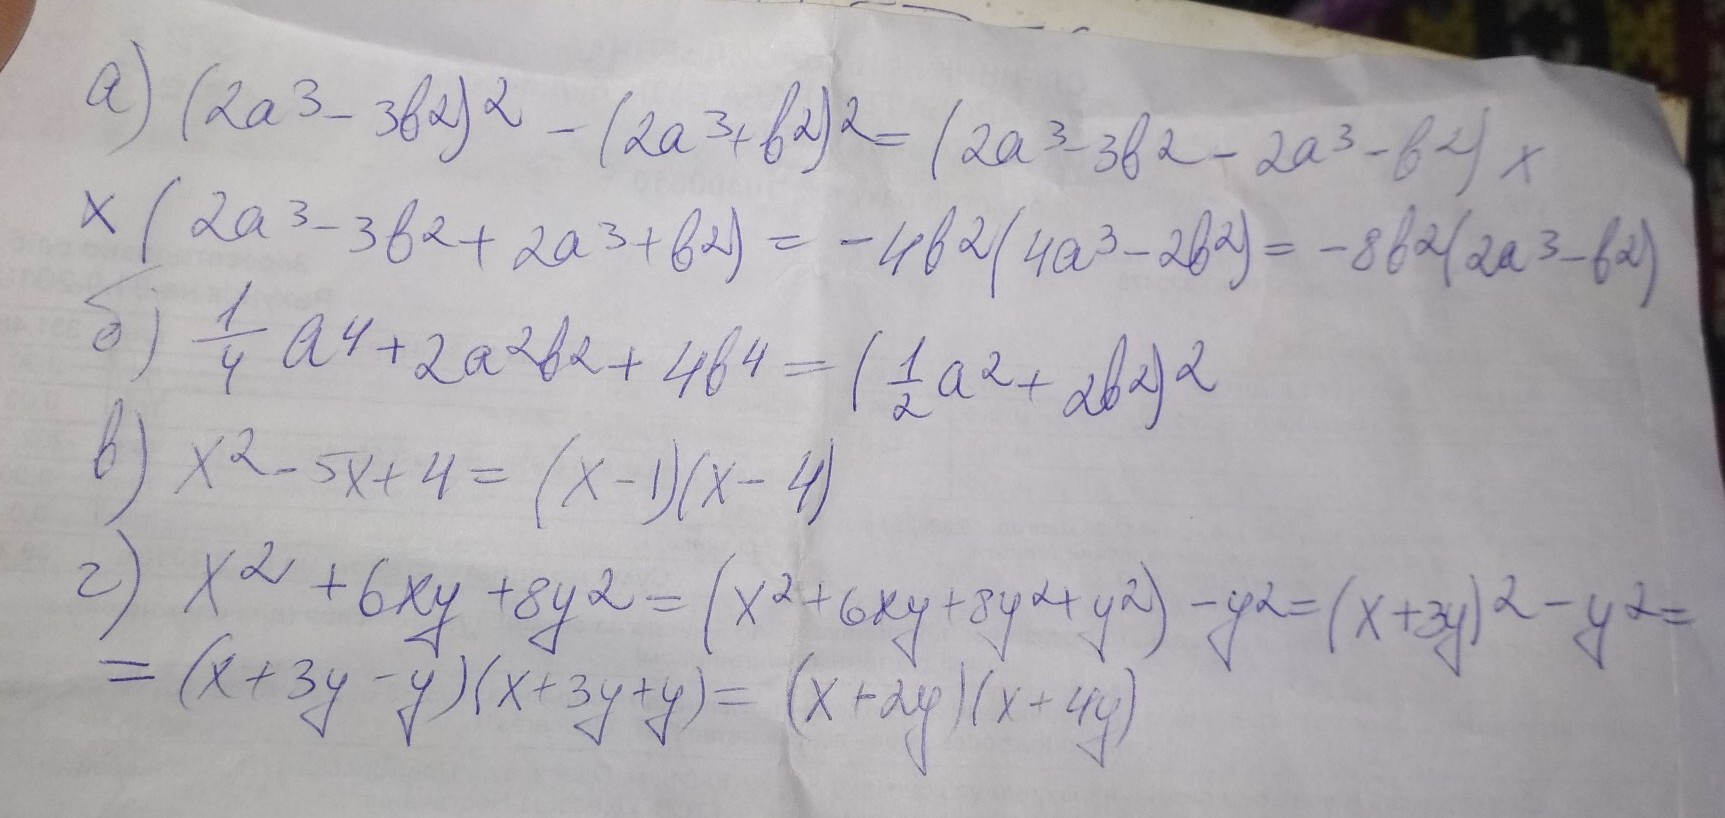 а) (2a³ - 3b²)² - (2a³ + b²)² = (2a³ - 3b² - 2a³ - b²) ×
× (2a³ - 3b² + 2a³ + b²) = -4b²(4a³ - 2b²) = -8b²(2a³ - b²)
б) 1/4 a⁴ + 2a²b² + 4b⁴ = (1/2 a² + 2b²)²
в) x² - 5x + 4 = (x - 1)(x - 4)
г) x² + 6xy + 8y² = (x² + 6xy + 8y² + y²) - y² = (x + 3y)² - y² =
= (x + 3y - y)(x + 3y + y) = (x + 2y)(x + 4y)